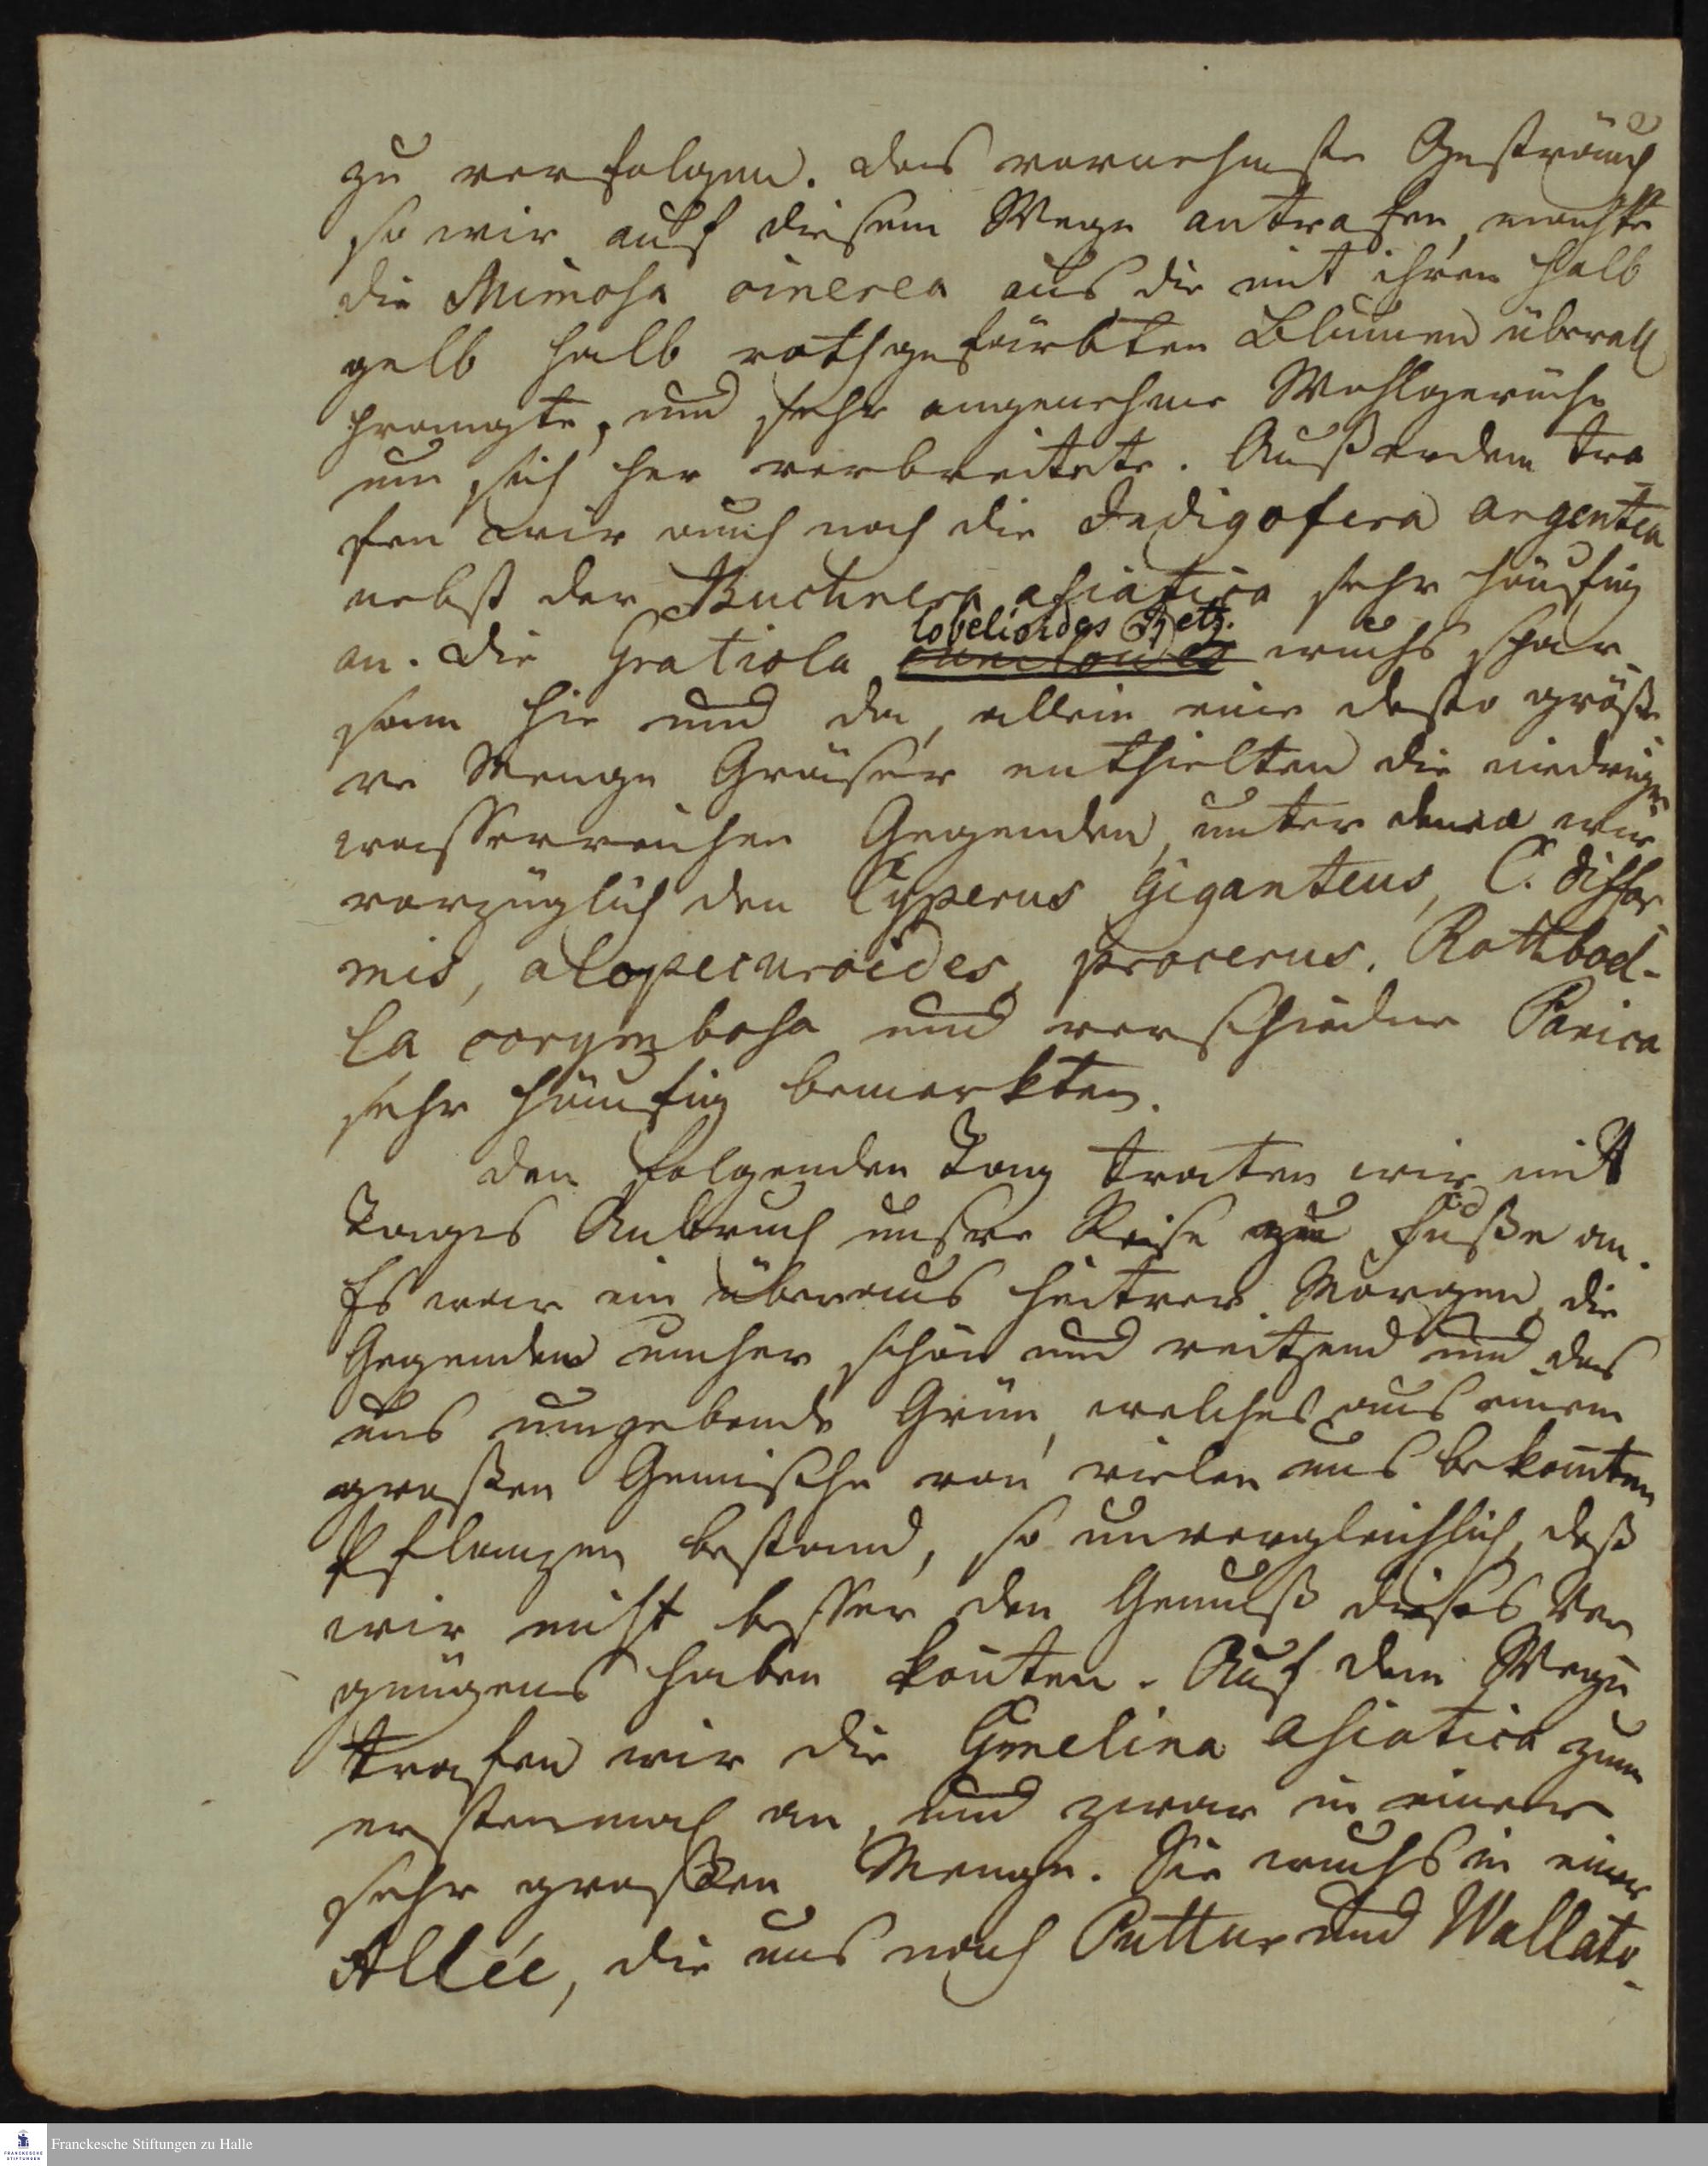 zu verfolgen. das vornehmste Gesträuch
so wir auf diesem Wege antrafen, machte
die Mimosa cinerea aus, die mit ihren halb
gelb halb rothgefärbten Blumen überall
prangte, und sehr angenehme Wohlgerüche
um sich her verbreitete. Außerdem tra-
fen wir auch noch die Indigofera argentea
nebst der Buchnera asiatica sehr häufig
an. die Gratiola lobelioides Retz. wuchs spar-
sam hie und da, allein eine desto größe-
re Menge Gräser enthielten die niedrigen
wasserreichen Gegenden, unter denen wir
vorzüglich den Cyperus giganteus, C. diffor-
mis, alopecuroides, procerus. Rottboel-
la corymbosa und verschiedne Panica
sehr häufig bemerkten.
den folgenden Tag traten wir mit
Tages Anbruch unsre Reise zu Fuße an.
Es war ein überaus heitrer Morgen, die
Gegenden umher schön und reitzend und das
uns umgebende Grün, welches aus einem
großen Gemische von vielen uns bekañten
Pflanzen bestand, so unvergleichlich, daß
wir nicht besser den Genuß dieses Ver
gnügens haben koñten. Auf dem Wege
trafen wir die Gmelina asiatica zum
erstenmal an, und zwar in einer
sehr großen Menge. Sie wuchs in einer
Allée, die uns nach Puttur und Wallato-
Franckesche Stiftungen zu Halle